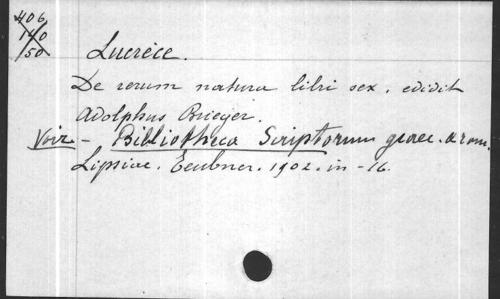 406
140
50
Lucrèce.
De rerum natura libri sex. edidit
Adolphus Brieger.
Voir - Bibliotheca Scriptorum graec. & rom.
Lipsiae. Teubner. 1902. in-16.